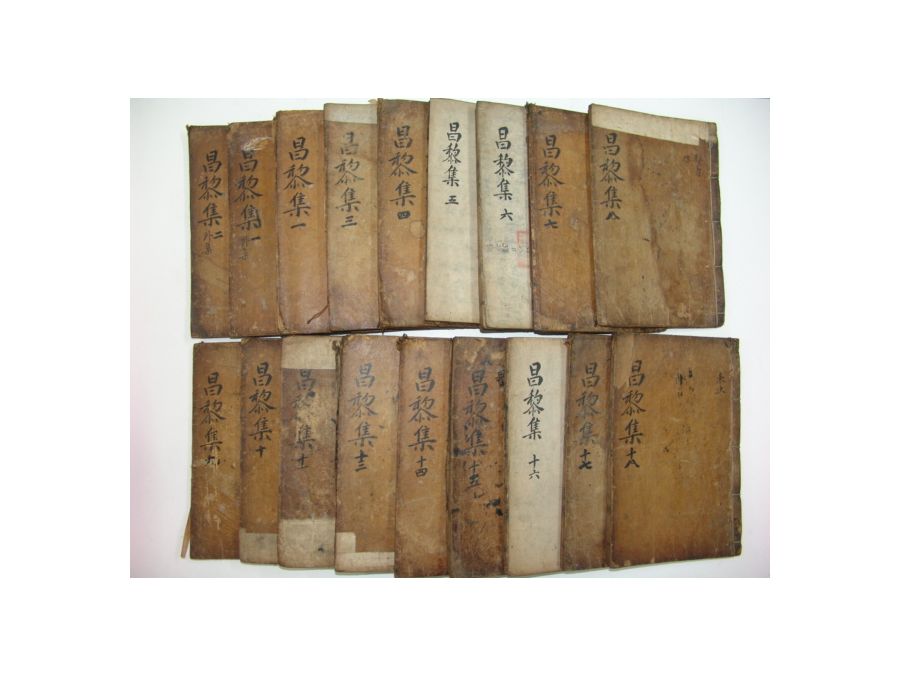 昌黎集二
外集
昌黎集一
外集
昌黎集一
昌黎集三
昌黎集四
昌黎集五
昌黎集六
昌黎集七
昌黎集八
昌黎集九
昌黎集十
昌黎集十一
昌黎集十三
昌黎集十四
昌黎集十五
昌黎集十六
昌黎集十七
昌黎集十八